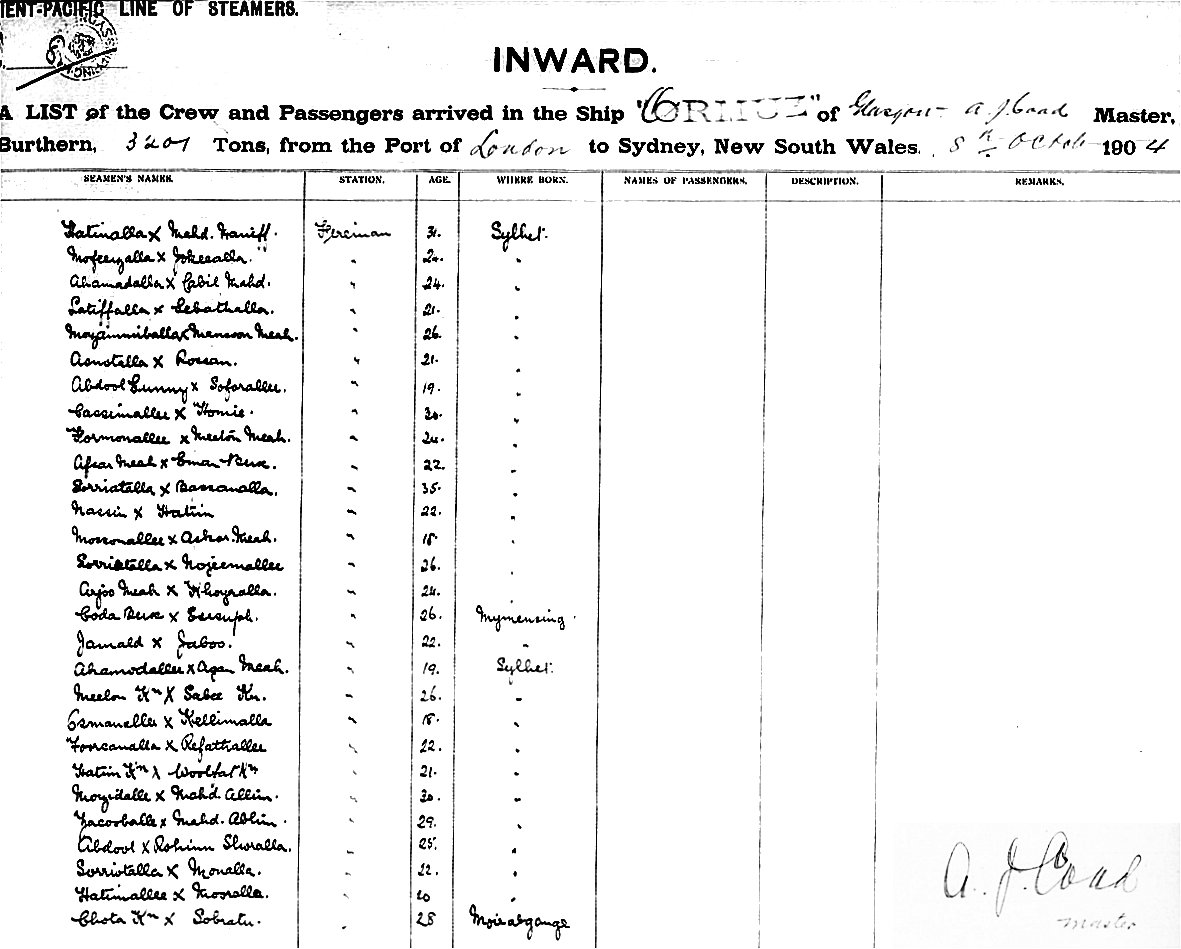 IENT-PACIFIC LINE OF STEAMERS.
INWARD.
A LIST of the Crew and Passengers arrived in the Ship "ORMUZ" of Glasgow A. J. Coad Master,
Burthern, 3201 Tons, from the Port of London to Sydney, New South Wales. 8th October 1904
SEAMEN'S NAMES. STATION. AGE. WHERE BORN. NAMES OF PASSENGERS. DESCRIPTION. REMARKS.
Hatimalla x Mahd. Hanieff. Fireman 31. Sylhet.
Mofeezalla x Jokeealla. " 24. "
Ahamadalla x Cabil Mahd. " 24. "
Latiffalla x Sebathalla. " 21. "
x Mansoon Meah. " 26. "
Asmotalla x Rossan. " 21. "
Abdool Gunny x Soforallee. " 19. "
Cassimallee x Homie. " 30. "
Formonallee x Meeton Meah. " 24. "
Afsar Meah x Eman Bux. " 22. "
Sorriatalla x Bassanalla. " 35. "
Nassin x Hatim " 22. "
Mossonallee x Askar Meah. " 18. "
Sorriatalla x Nojeemallee " 26. "
Arjoo Meah x Khoyralla. " 24. "
Coda Bux x Essuph. " 26. Mymensing.
Jamald x Jaboo. " 22. "
Ahamodallee x Agan Meah. " 19. Sylhet.
Meelon Kn x Sabee Kn. " 26. "
Osmanallee x Kellimalla " 18. "
Forcanalla x Refathallee " 22. "
Hatim Kn x Woolfat Kn " 21. "
Moyidalle x Mahd. Allim. " 30. "
Yacooballe x Mahd. Ablim. " 29. "
Abdool x Rohim Shoralla. " 25. "
Sorriotalla x Monalla. " 22. "
Hatimallee x Mooralla. " 20 "
Chota Kn x Sobratu. " 28
A. J. Coad
Master